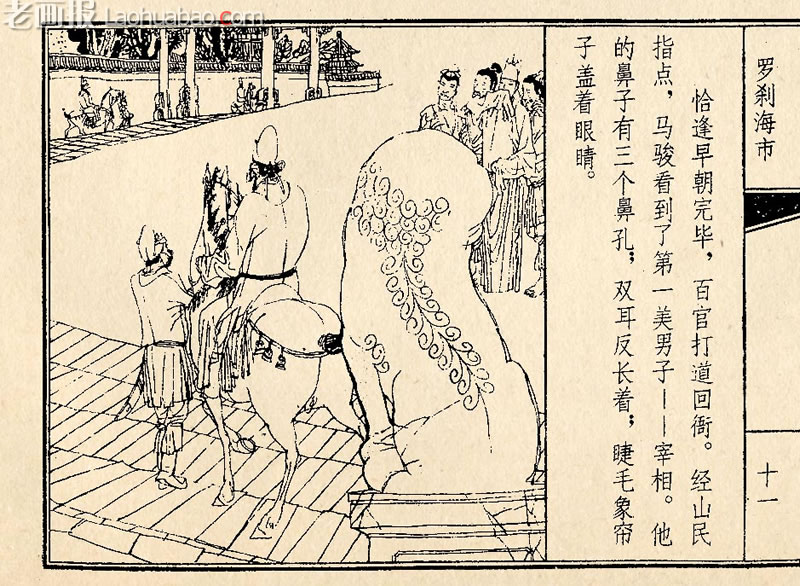 老画报
Laohuabao.com
罗刹海市
恰逢早朝完毕，百官打道回衙。经山民
指点，马骏看到了第一美男子——宰相。他
的鼻子有三个鼻孔；双耳反长着；睫毛象帘
子盖着眼睛。
十一